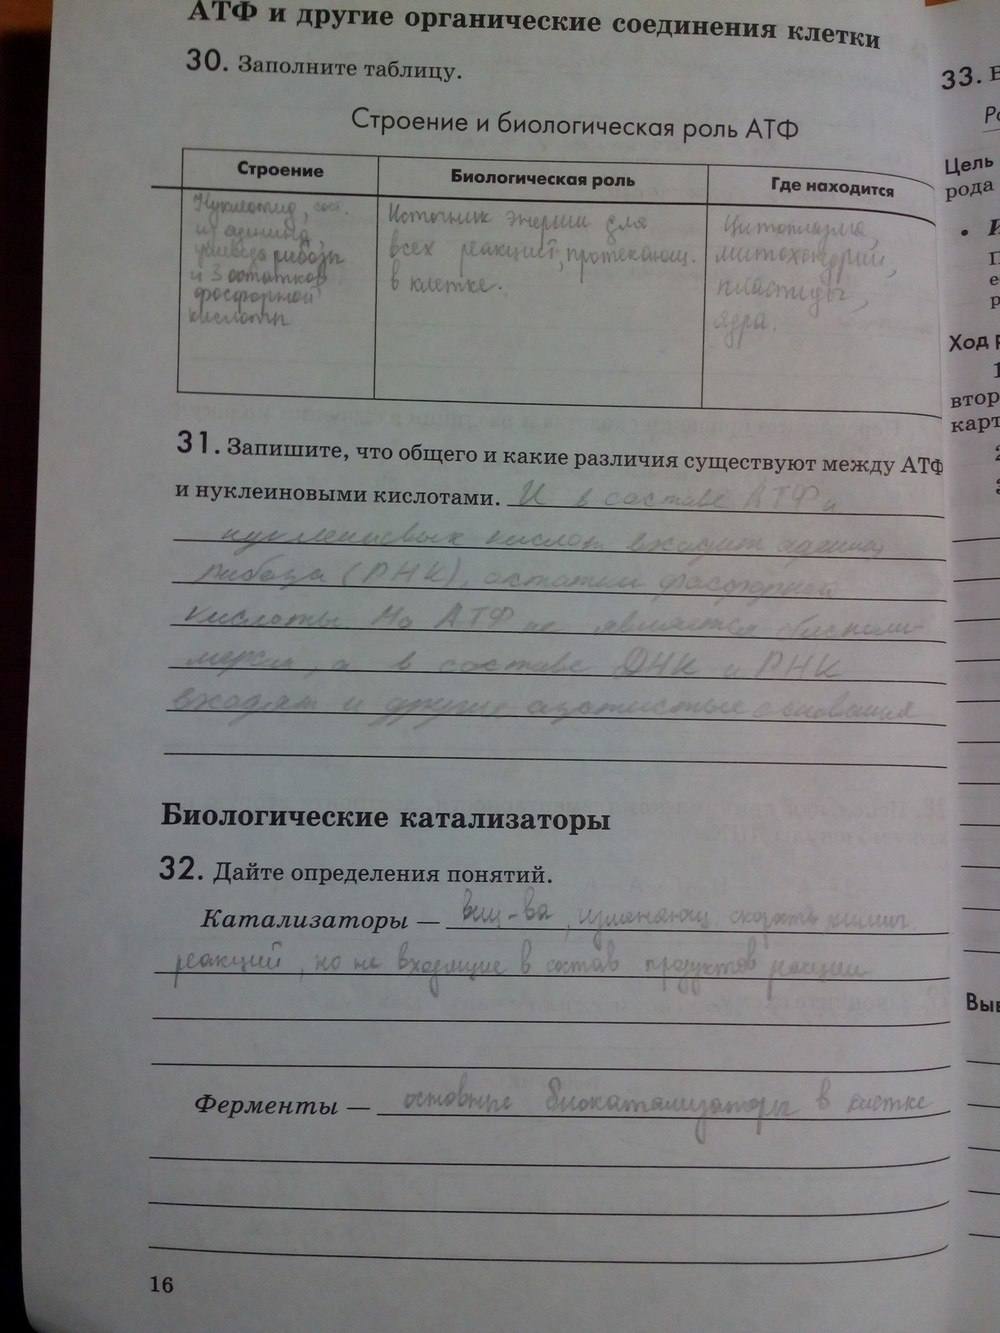 АТФ и другие органические соединения клетки
30. Заполните таблицу.
Строение и биологическая роль АТФ
Строение
Биологическая роль
Где находится
Нуклеотид, сост.
из аденина
углевода рибозы
и 3 остатков
фосфорной
кислоты
Источник энергии для
всех реакций, протекающ.
в клетке.
Цитоплазма,
митохондрии,
пластиды,
ядра.
31. Запишите, что общего и какие различия существуют между АТФ
и нуклеиновыми кислотами. И в составе АТФ и
нуклеиновых кислот входит аденин
рибоза (РНК), остатки фосфорной
кислоты Но АТФ не является
а в составе ДНК и РНК
входят и другие азотистые основания
Биологические катализаторы
32. Дайте определения понятий.
Катализаторы — вещ-ва, изменяющ. скорость химич.
реакций, но не входящие в состав продуктов реакции
Ферменты — основные биокатализаторы в клетке
16
33.
Цель
рода
Ход р
втор
карт
Выв